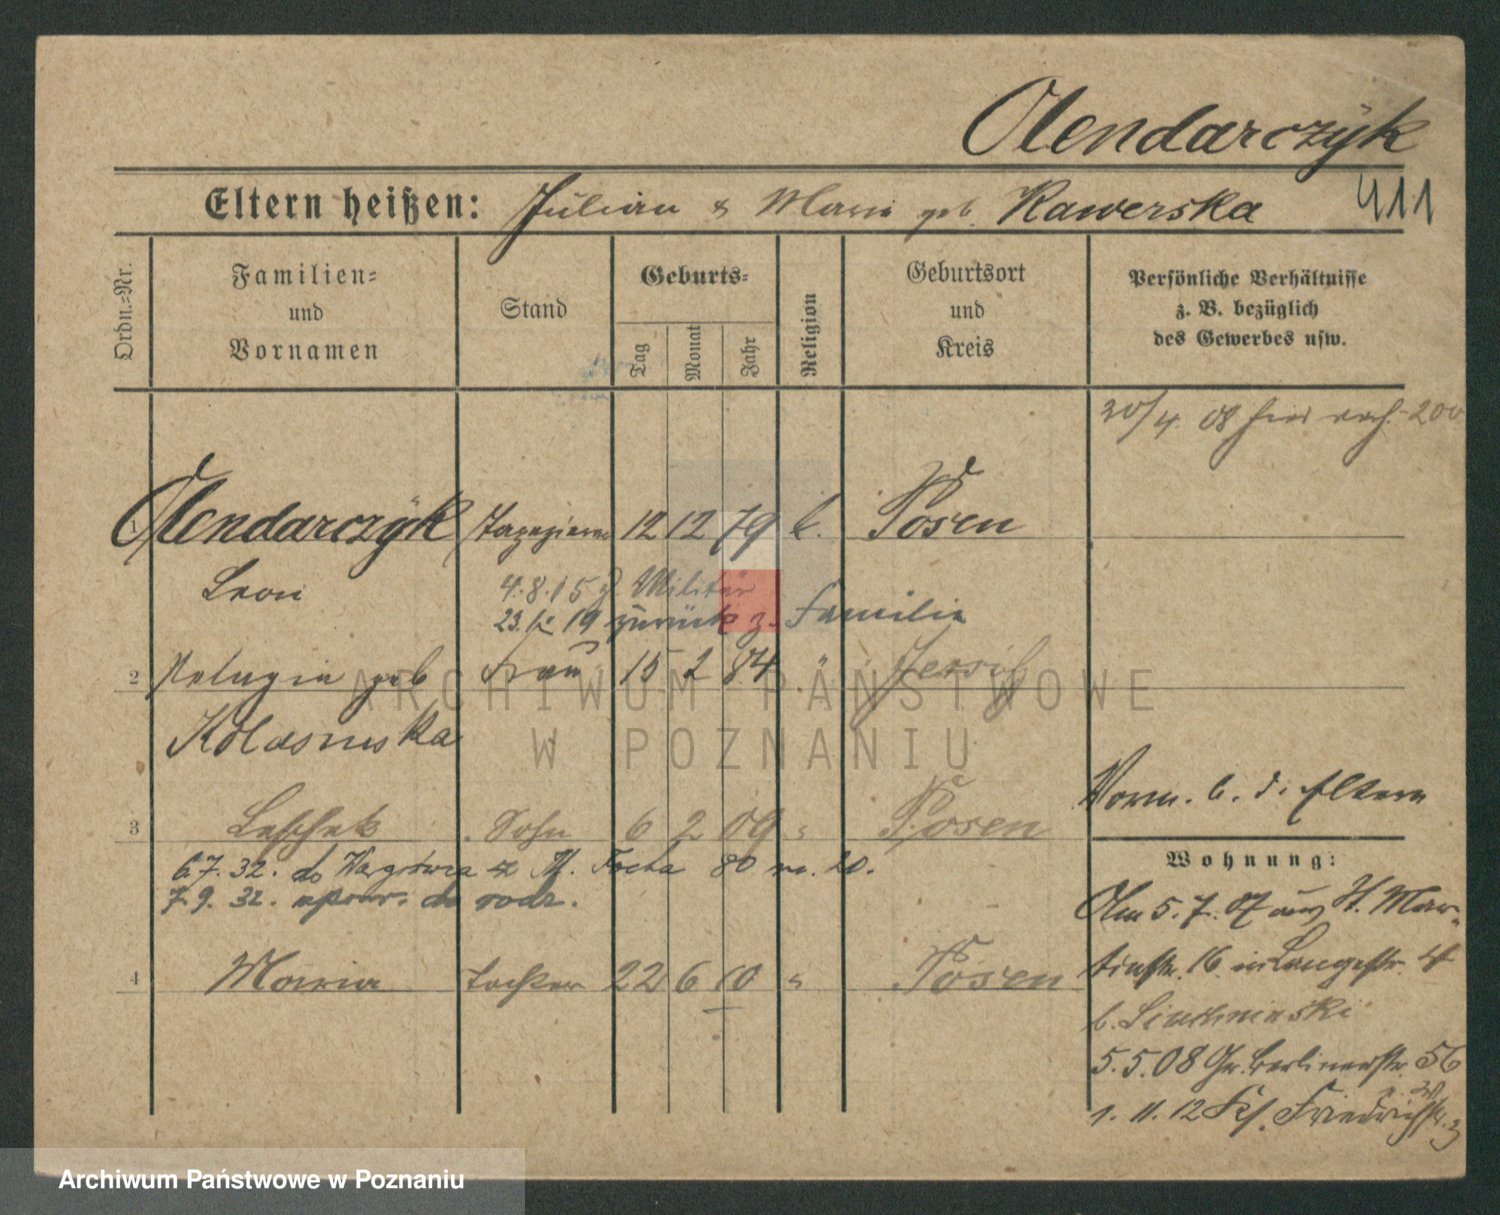 Olendarczÿk
Eltern heißen: Julian & Maria geb. Kawerska 411
Ordn.=Nr.
Familien=
und
Vornamen
Stand
Geburts=
Tag
Monat
Jahr
Religion
Geburtsort
und
Kreis
Persönliche Verhältnisse
z. B. bezüglich
des Gewerbes usw.
20/4. 08 hier 200
1 Olendarczÿk Tapezierer 12 12 79 k. Posen
Leon
4.8.15 z. Militär
23. 19 zurück z. Familie
2 Pelagia geb Frau 15 2 84 " Jersitz
Kolasinska
Vorm. b. d. Eltern
3 Leschek Sohn 6 2 09 " Posen
6.7.32. do Wągrówca M. Focha 80 m. 20.
7.9.32. do rodz.
4 Maria Tochter 22 6 10 " Posen
Wohnung:
Am 5.7.07 aus St. Mar-
tinstr. 16 in Langestr. 4
b.
5.5.08 Gr. Berlinerstr. 56
1. 11. 12 Kl. Friedrichstr. 3
ARCHIWUM PAŃSTWOWE
W POZNANIU
Archiwum Państwowe w Poznaniu